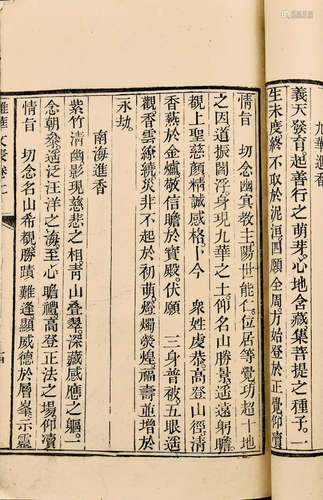 九華進香
義天發育起善行之萌芽心地含藏集菩提之種子一
生未度終不取於泥洹四願全周方始登於正覺仰瀆
情旨　切念幽冥教主陽世能仁位居等覺功超十地
之因道振閻浮身現九華之土仰名山勝景遥遠躬瞻
觀上聖慈顏精誠感格卜今　衆姓虔恭高登山徑清
香爇於金爐敬信瞻於寶殿伏願　三身普被五眼遥
觀香雲繚繞災非不起於初萌燈燭熒煌福壽並增於
永劫
南海進香
紫竹清幽影現慈悲之相靑山叠翠深藏感應之軀一
念朝參遥泛汪洋之海至心瞻禮高登正法之場仰瀆
情旨　切念名山希觀勝蹟難逢顯威德於層峯示靈